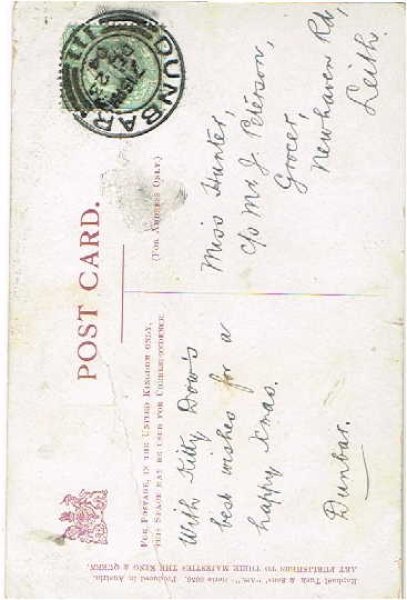 POST CARD.
FOR POSTAGE, IN THE UNITED KINGDOM ONLY,
THIS SPACE MAY BE USED FOR CORRESPONDENCE
(FOR ADDRESS ONLY.)
DUNBAR
DE 23
With Kitty Dow's
best wishes for a
happy Xmas.
Dunbar.
Miss Hunter,
c/o Mr J. Peterson,
Grocer,
Newhaven Rd,
Leith.
Raphael Tuck & Sons' "Art" Series Produced in Austria.
ART PUBLISHERS TO THEIR MAJESTIES THE KING & QUEEN.